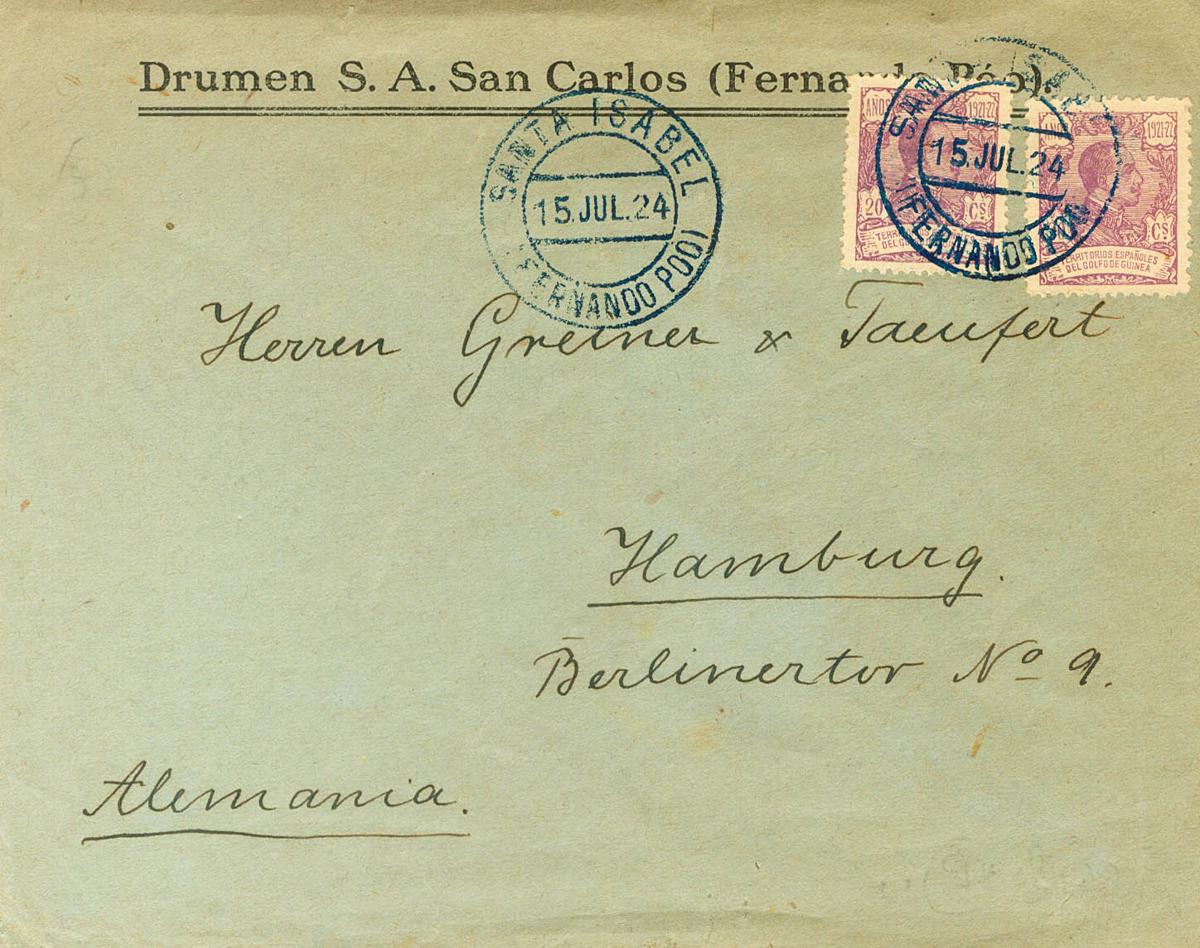 Drumen S. A. San Carlos (Fernando Póo).
SANTA ISABEL
15.JUL.24
(FERNANDO POO)
SANTA ISABEL
15.JUL.24
(FERNANDO POO)
AÑOS 1921-22
20 Cs
TERRITORIOS
DEL GOLFO
1921-22
Cs
TERRITORIOS ESPAÑOLES
DEL GOLFO DE GUINEA
Herren Greiner & Taeufert
Hamburg.
Berlinertor No 9.
Alemania.